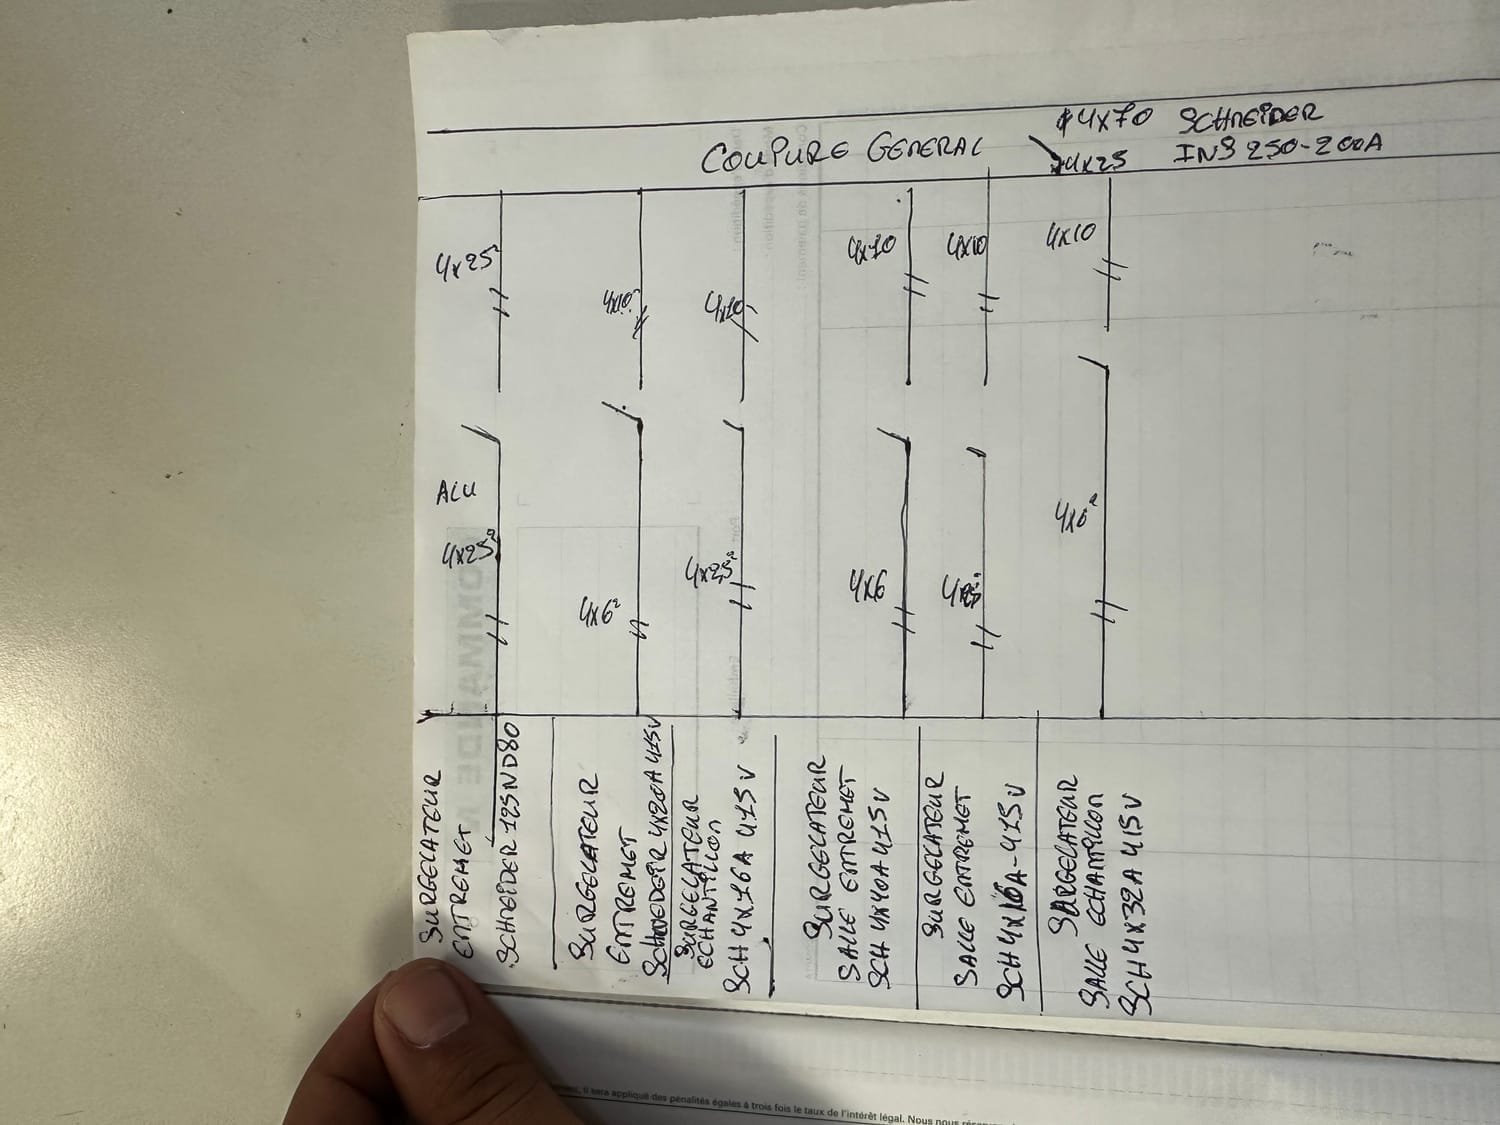 4x70 SCHNEIDER
COUPURE GENERAL
4x25 INS 250-200A
4x25²
4x10²
4x10
4x10
4x10
4x10
ALU
4x25²
4x6²
4x2,5²
4x6
4x6²
SURGELATEUR
ENTREMET
SCHNEIDER 125ND80
SURGELATEUR
ENTREMET
4x20A 415V
SURGELATEUR
ECHANTILLON
SCH 4x16A 415V
SURGELATEUR
SALLE ENTREMET
SCH 4x40A 415V
SURGELATEUR
SALLE ENTREMET
SCH 4x16A-415V
SURGELATEUR
SALLE ECHANTILLON
SCH 4x32A 415V
il sera appliqué des pénalités égales à trois fois le taux de l'intérêt légal. Nous nous